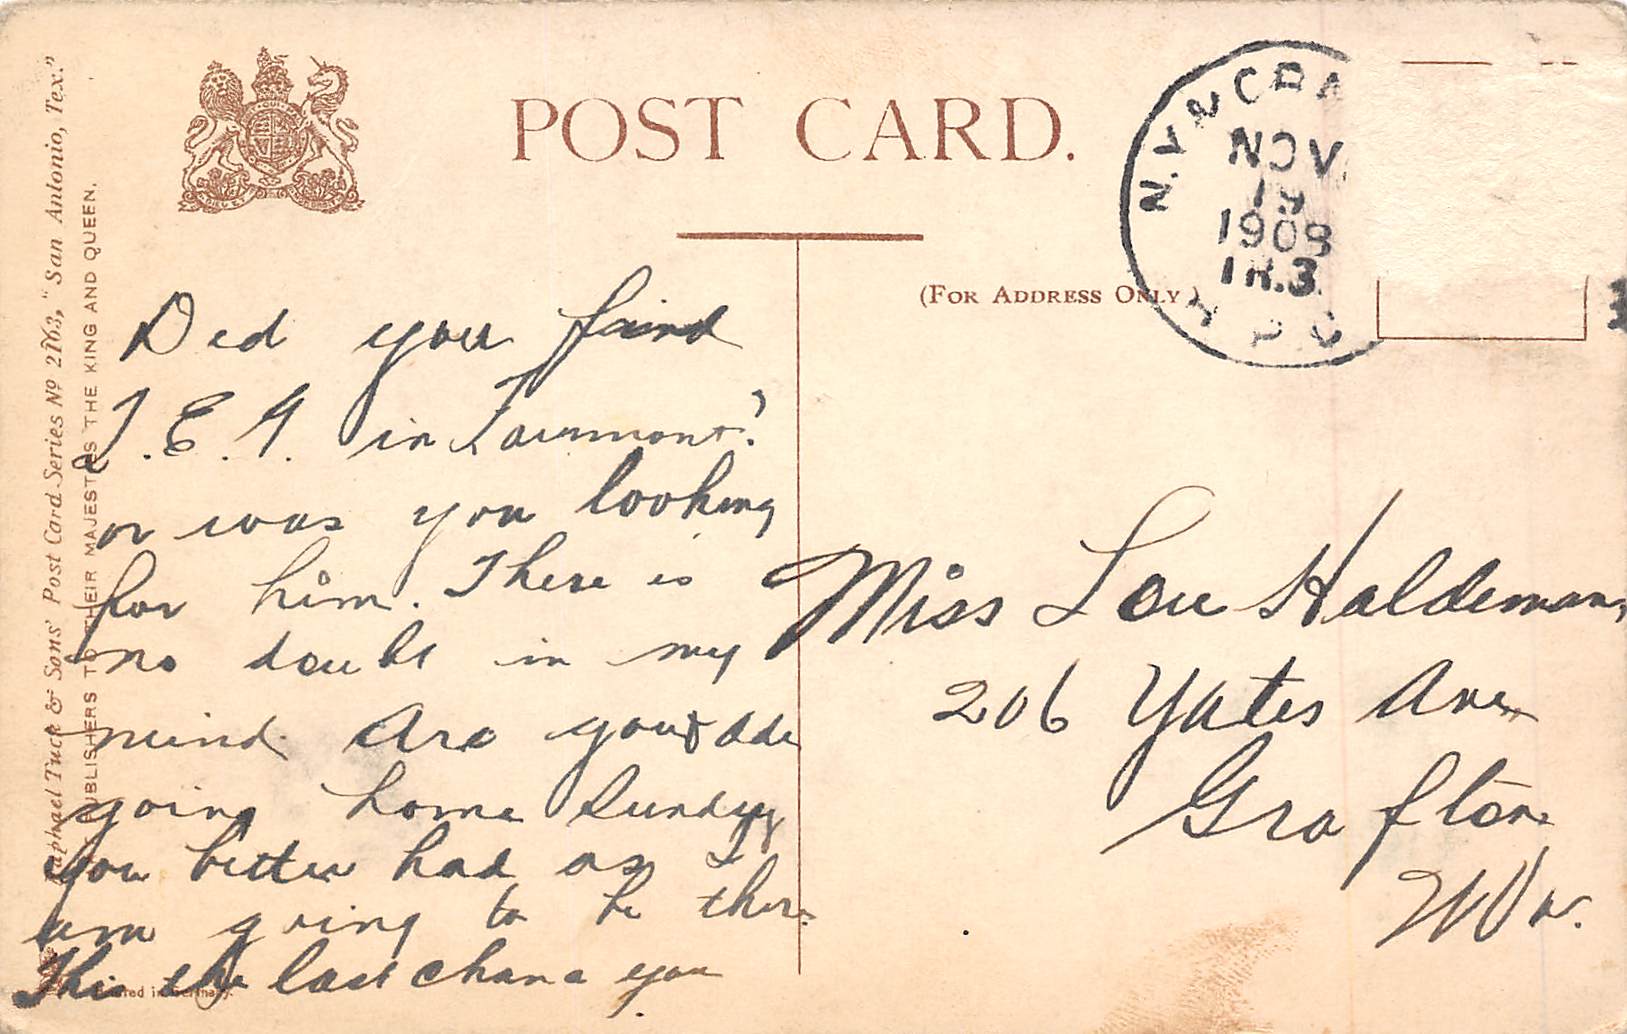 POST CARD.
(FOR ADDRESS ONLY)
N.Y.
NOV
19
1908
TR.3
Raphael Tuck & Sons' Post Card Series Nº 2163, "San Antonio, Tex."
PUBLISHERS TO THEIR MAJESTIES THE KING AND QUEEN.
Printed in Germany.
Did you find
in Fairmont?
or was you looking
for him. There is
no doubt in my
mind Are you
going home Sunday
you better had as I
am going to be there
This the last chance you
Miss Lou Haldeman,
206 Yates Ave
Grafton
W Va.